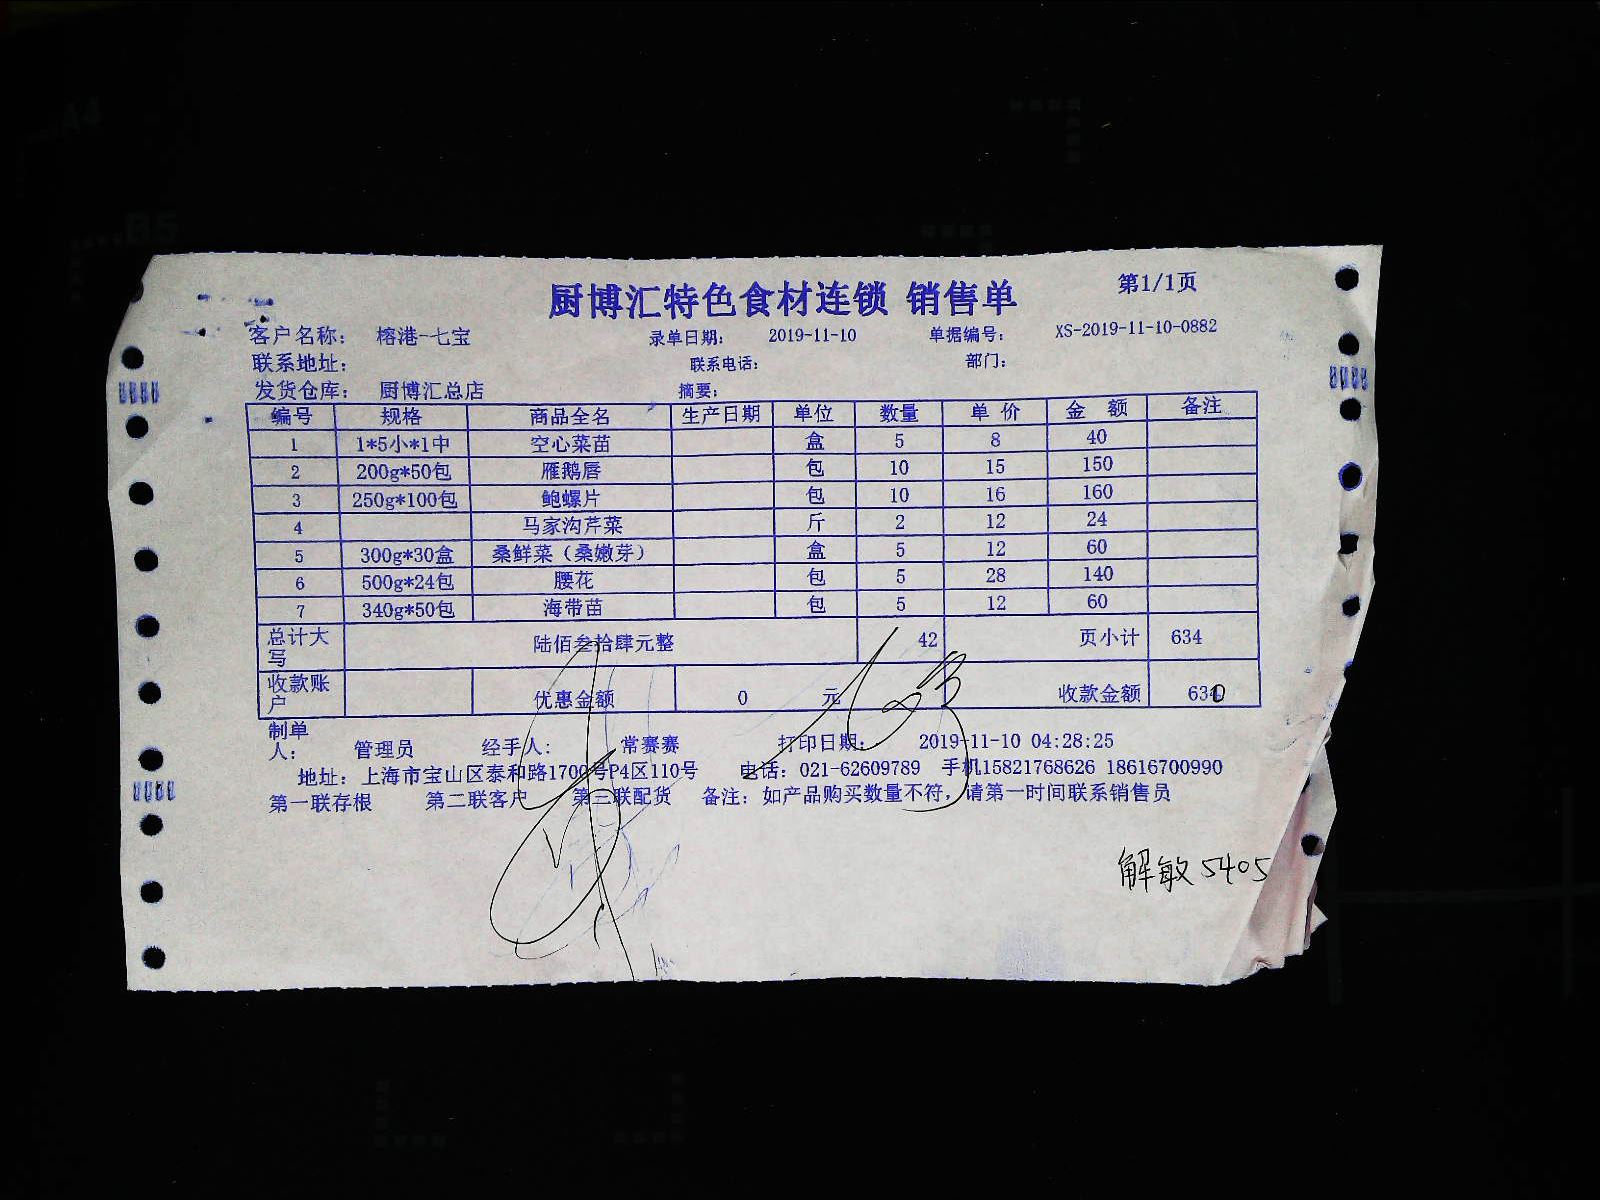 厨博汇特色食材连锁 销售单 第1/1页
客户名称: 榕港-七宝 录单日期: 2019-11-10 单据编号: XS-2019-11-10-0882
联系地址: 联系电话: 部门:
发货仓库: 厨博汇总店 摘要:
编号 规格 商品全名 生产日期 单位 数量 单价 金额 备注
1 1*5小*1中 空心菜苗 盒 5 8 40
2 200g*50包 雁鹅唇 包 10 15 150
3 250g*100包 鲍螺片 包 10 16 160
4 马家沟芹菜 斤 2 12 24
5 300g*30盒 桑鲜菜（桑嫩芽） 盒 5 12 60
6 500g*24包 腰花 包 5 28 140
7 340g*50包 海带苗 包 5 12 60
总计大写 陆佰叁拾肆元整 42 页小计 634
收款账户 优惠金额 0 元 收款金额 630
制单人: 管理员 经手人: 常赛赛 打印日期: 2019-11-10 04:28:25
地址: 上海市宝山区泰和路1700号P4区110号 电话: 021-62609789 手机15821768626 18616700990
第一联存根 第二联客户 第三联配货 备注: 如产品购买数量不符，请第一时间联系销售员
解敏 5405